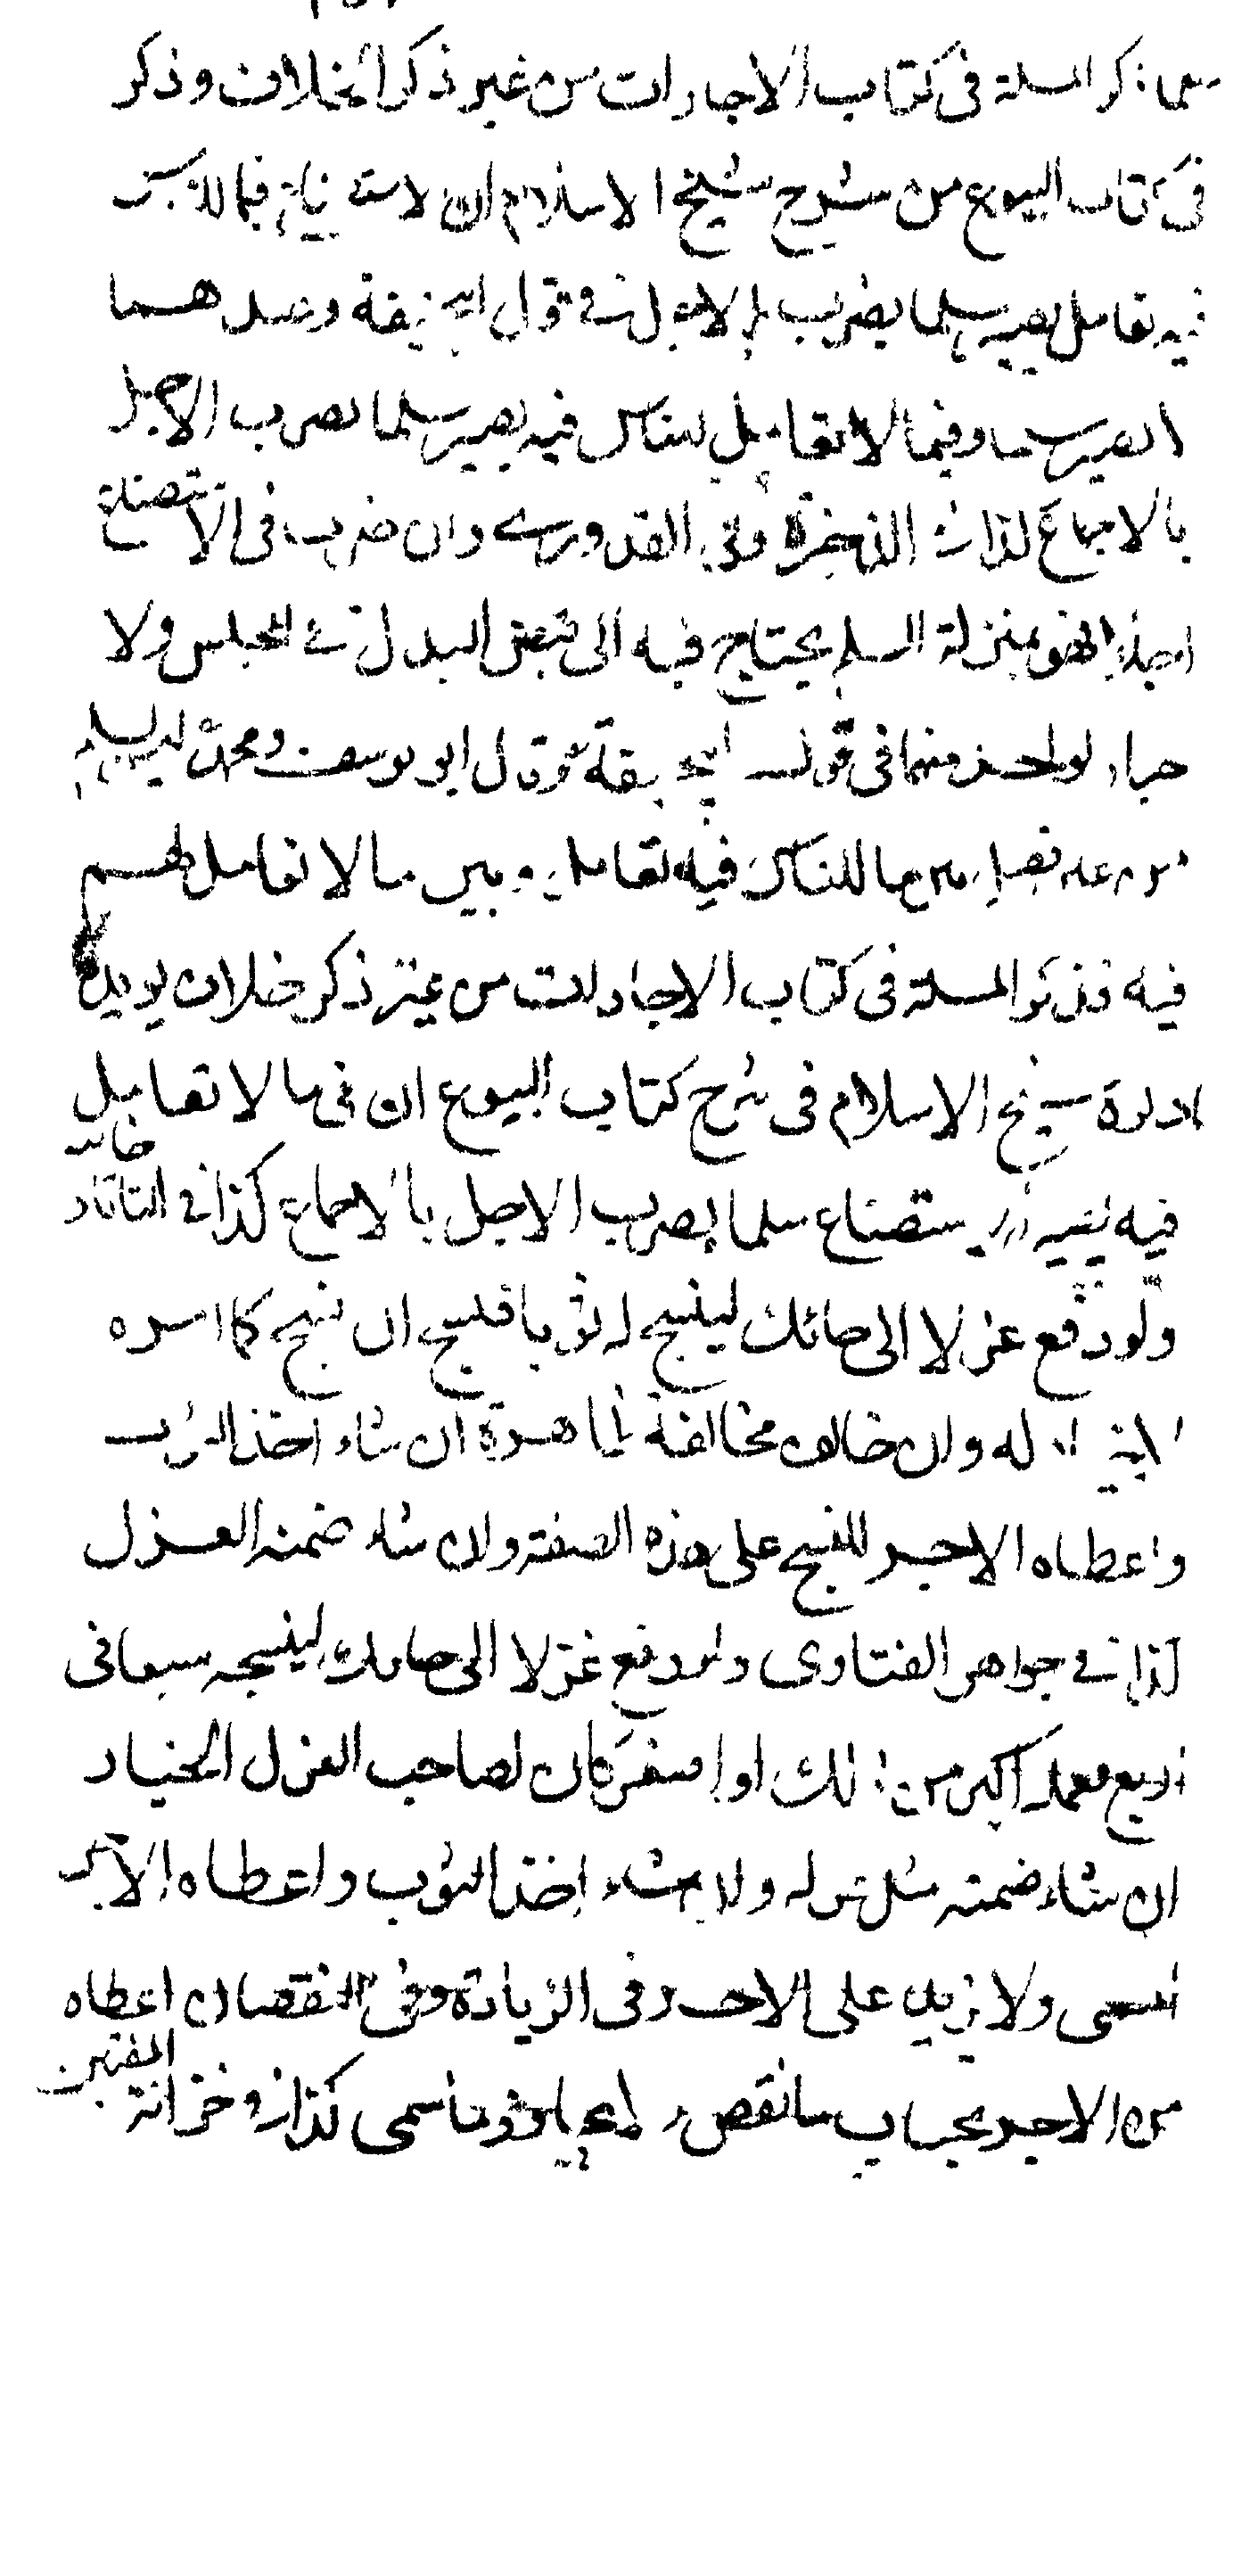 سلما ذكر المسئلة فى كتاب الاجارات من غير ذكر الخلاف وذكر
فى كتاب البيوع من شرح شيخ الاسلام ان الاستصناع فيما للناس
فيه تعامل يصير سلما بضرب الاجل فى قول ابيحنيفة وعندهما
لا يصير سلما وفيما لا تعامل للناس فيه يصير سلما بضرب الاجل
بالاجماع كذا فى الذخيرة وفى القدورى وان ضرب فى الاستصناع
اجلا فهو بمنزلة السلم يحتاج فيه الى قبض البدل فى المجلس ولا
خيار لواحد منهما فى قول ابيحنيفة وقال ابو يوسف ومحمد ليس بسلم
من غير فصل بين ما للناس فيه تعامل وبين ما لا تعامل لهم
فيه فذكر المسئلة فى كتاب الاجارات من غير ذكر خلاف يويد
شيخ الاسلام فى شرح كتاب البيوع ان فى ما لا تعامل
فيه يصير الاستصناع سلما بضرب الاجل بالاجماع كذا فى التاتارخانيه
ولو دفع غزلا الى حائك لينسج له ثوبا فنسج ان نسج كما امره
له وان خالف مخالفة ظاهرة ان شاء اخذ الثوب
واعطاه الاجر للنسج على هذه الصفة وان شاء ضمنه الغزل
كذا فى جواهر الفتاوى ولو دفع غزلا الى حائك لينسجه سبعا فى
اربع فعمله اكبر من ذلك او اصغر كان لصاحب الغزل الخيار
ان شاء ضمنه مثل غزله وان شاء اخذ الثوب واعطاه الاجر
المسمى ولا يزيد على الاجر فى الزيادة وفى النقصان اعطاه
من الاجر بحساب ما نقص ما سمى كذا فى خزانة المفتين